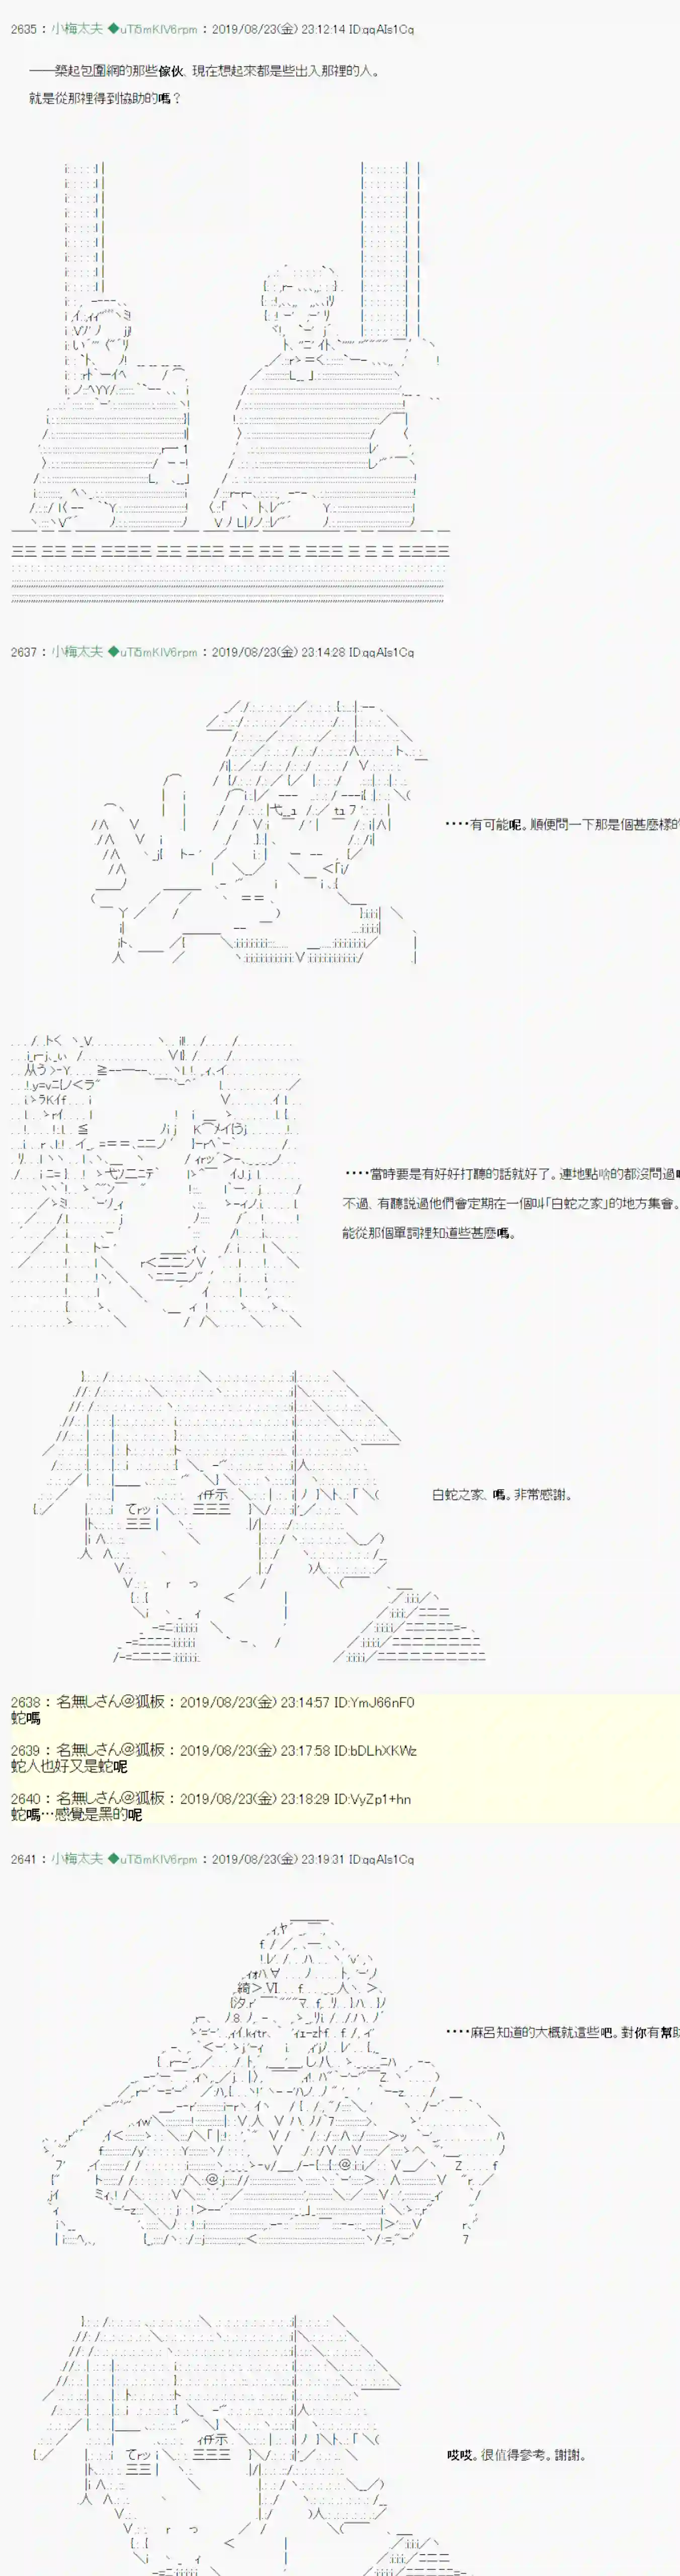 2635 : 小梅太夫 ◆uTi5mKIV6rpm : 2019/08/23(金) 23:12:14 ID:qqAIs1Cq
――築起包圍網的那些傢伙、現在想起來都是些出入那裡的人。
就是從那裡得到協助的嗎？
2637 : 小梅太夫 ◆uTi5mKIV6rpm : 2019/08/23(金) 23:14:28 ID:qqAIs1Cq
・・・・有可能呢。順便問一下那是個甚麼樣的
・・・・當時要是有好好打聽的話就好了。連地點啥的都沒問過
不過、有聽說過他們會定期在一個叫「白蛇之家」的地方集會。
能從那個單詞裡知道些甚麼嗎。
白蛇之家、嗎。非常感謝。
2638 : 名無しさん＠狐板 : 2019/08/23(金) 23:14:57 ID:YmJ66nF0
蛇嗎
2639 : 名無しさん＠狐板 : 2019/08/23(金) 23:17:58 ID:bDLhXKWz
蛇人也好又是蛇呢
2640 : 名無しさん＠狐板 : 2019/08/23(金) 23:18:29 ID:VyZp1+hn
蛇嗎…感覺是黑的呢
2641 : 小梅太夫 ◆uTi5mKIV6rpm : 2019/08/23(金) 23:19:31 ID:qqAIs1Cq
・・・・麻呂知道的大概就這些吧。對你有幫助
哎哎。很值得參考。謝謝。